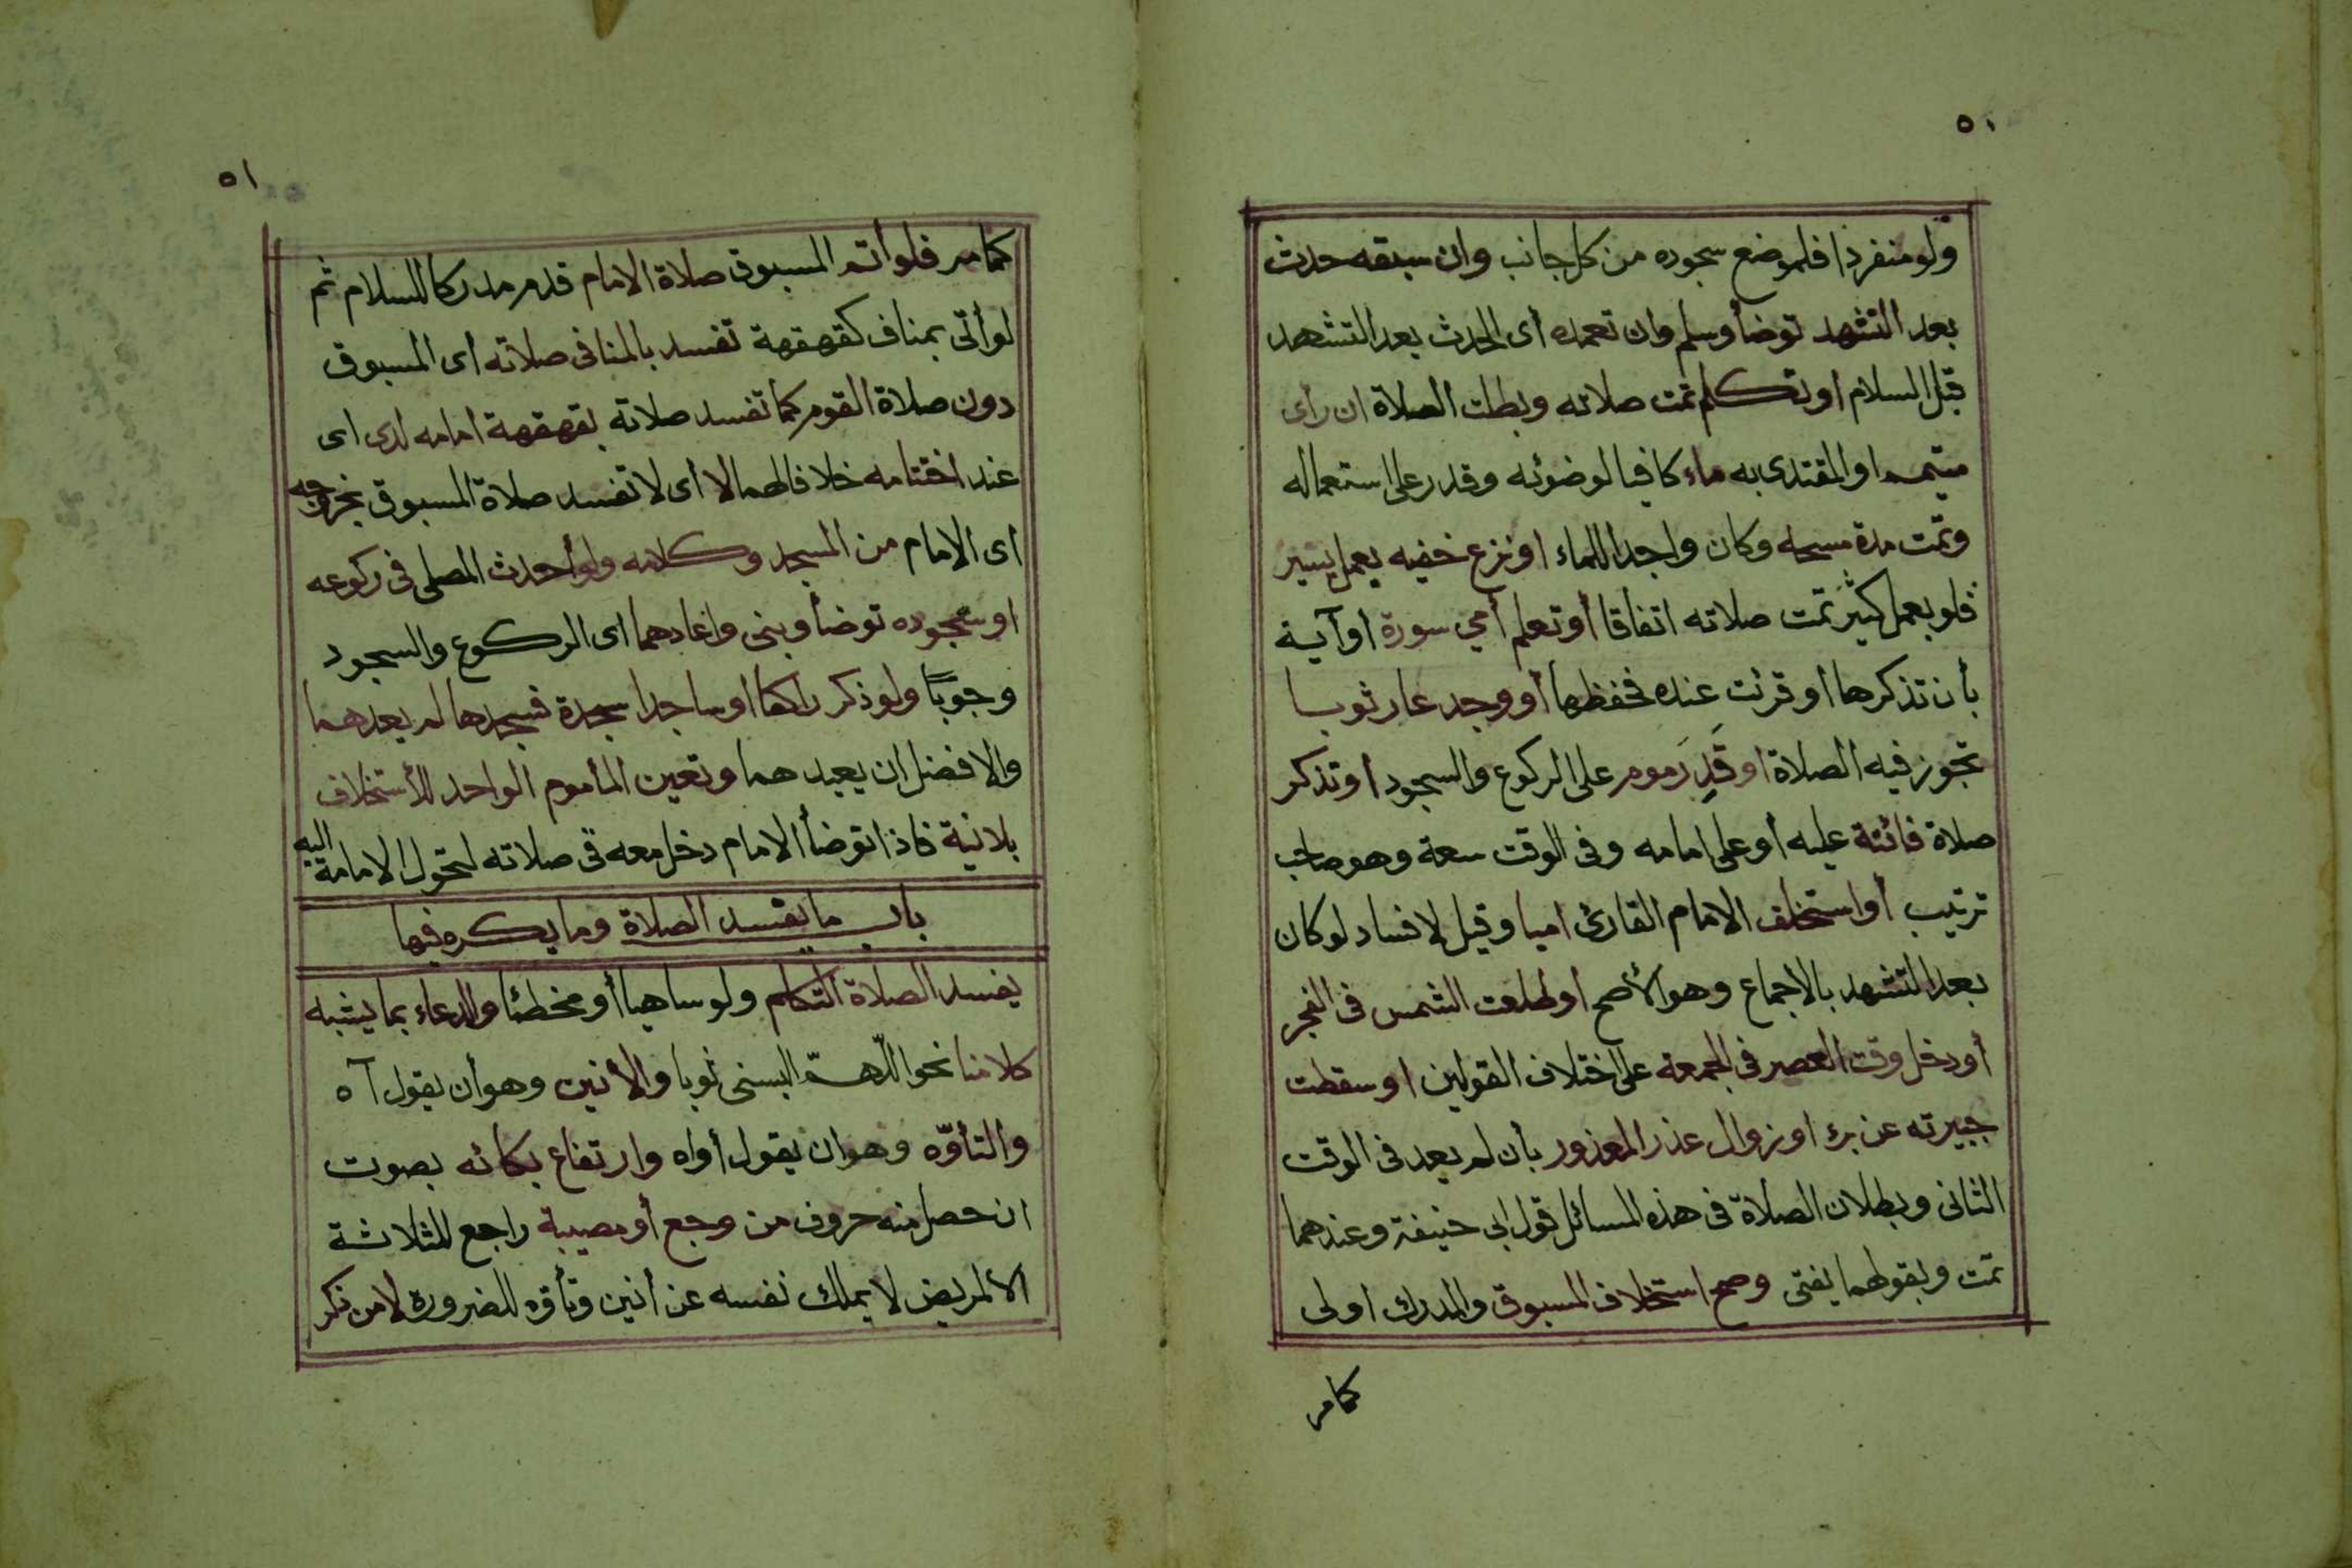 ٥٠
ولو منفردا فلموضع سجوده من كل جانب وان سبقه حدث
بعد التشهد توضأ وسلم وان تعمده أى الحدث بعد التشهد
قبل السلام او تكلم تمت صلاته وبطلت الصلاة ان رأى
متيمم او المقتدى به ماء كافيا لوضوئه وقدر على استعماله
وتمت مدة مسحه وكان واجدا للماء او نزع خفيه بعمل يسير
فلو بعمل كثير تمت صلاته اتفاقا أو تعلم أمي سورة أو آية
بأن تذكرها أو قرئت عنده فحفظها أو وجد عار ثوبا
تجوز فيه الصلاة او قَدِرَ مومر على الركوع والسجود او تذكر
صلاة فائتة عليه أو على امامه وفى الوقت سعة وهو صاحب
ترتيب أو استخلف الامام القارئ اميا وقيل لا فساد لو كان
بعد التشهد بالاجماع وهو الأصح او طلعت الشمس فى الفجر
أو دخل وقت العصر فى الجمعة على اختلاف القولين او سقطت
جبيرته عن برء او زوال عذر المعذور بأن لم يعد فى الوقت
الثانى وبطلان الصلاة فى هذه المسائل قول ابى حنيفة وعندهما
تمت وبقولهما يفتى وصح استخلاف المسبوق والمدرك اولى
كامر
٥١
كمامر فلو أتم المسبوق صلاة الامام قدم مدركا للسلام ثم
لو أتى بمناف كقهقهة تفسد بالمنافى صلاته أى المسبوق
دون صلاة القوم كما تفسد صلاته بقهقهة امامه لدى اى
عند اختتامه خلافا لهما لا أى لا تفسد صلاة المسبوق بخروجه
اى الامام من المسجد وكلامه ولو أحدث المصلى فى ركوعه
او سجوده توضأ وبنى واعادهما اى الركوع والسجود
وجوبًا ولو ذكر راكعا او ساجدا سجدة فسجدها لم يعدهما
والافضل ان يعيدهما وتعين المأموم الواحد للأستخلاف
بلانية فاذا توضأ الامام دخل معه فى صلاته لتحول الامامة اليه
باب ما يفسد الصلاة وما يكره فيها
يفسد الصلاة التكلم ولو ساهيا أو مخطئا والدعاء بما يشبه
كلامنا نحو اللّهمّ البسنى ثوبا والأنين وهو أن يقول آه
والتأوّه وهو ان يقول أواه وارتفاع بكائه بصوت
ان حصل منه حروف من وجع أو مصيبة راجع للثلاثة
الا لمريض لا يملك نفسه عن أنين وتأوه للضرورة لا من ذكر